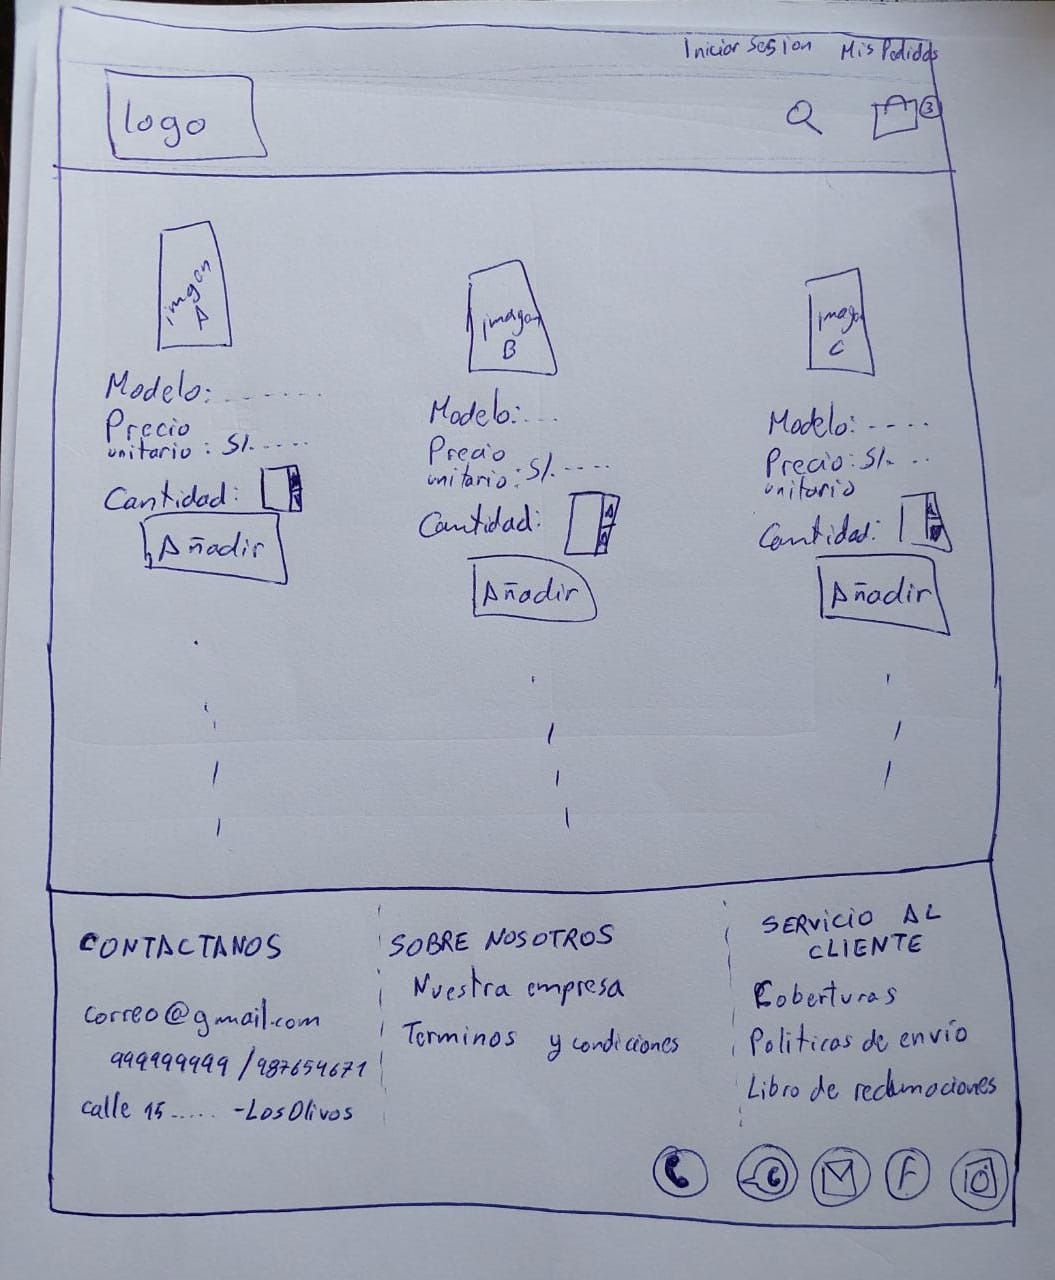 Iniciar Sesion Mis Pedidos
logo
3
imgen
A
Modelo: .......
Precio
unitario : S/. .....
Cantidad:
Añadir
imagen
B
Modelo: ...
Precio
unitario : S/. ....
Cantidad:
Añadir
imagen
C
Modelo: ----
Precio : S/. ...
unitario
Cantidad:
Añadir
CONTACTANOS
correo@gmail.com
999999999 / 987654671
calle 15 ..... - Los Olivos
SOBRE NOSOTROS
Nuestra empresa
Terminos y condiciones
SERVICIO AL
CLIENTE
Coberturas
Politicas de envío
Libro de reclamaciones
f